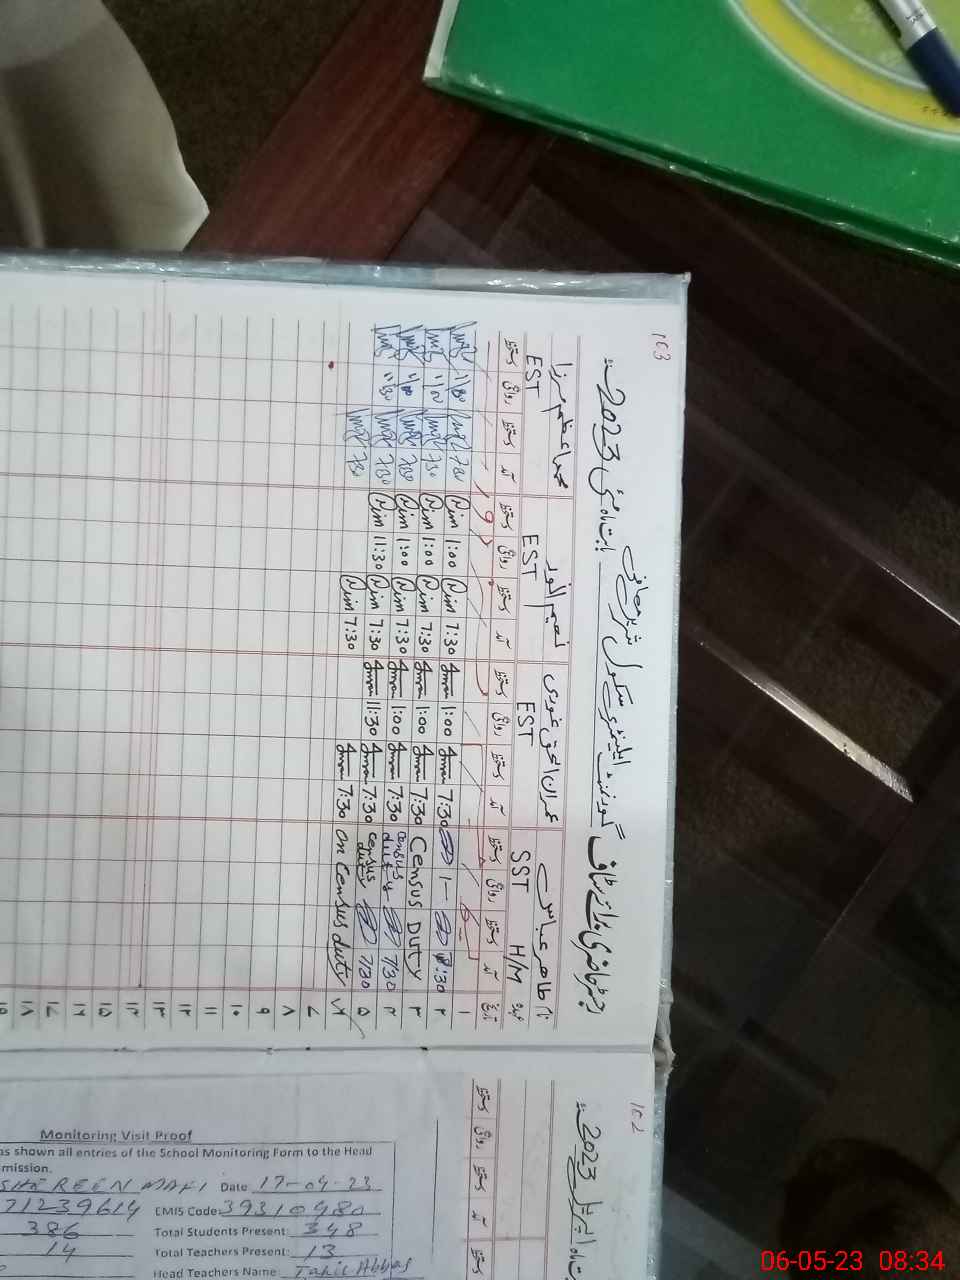 163
رجسٹر حاضری برائے سٹاف گورنمنٹ ایلیمنٹری سکول شیر معافی بابت ماہ مئی 2023ء
نام طاہر عباس عمران الحق غوری نعیم الفر محمد اعظم مرزا
عہدہ H/M SST EST EST EST
تاریخ آمد دستخط روانگی دستخط آمد دستخط روانگی دستخط آمد دستخط روانگی دستخط آمد دستخط روانگی دستخط
۱
۲ 8:30 1- 7:30 1:00 7:30 1:00 7:30
۳ CENSUS DUTY 7:30 1:00 7:30 1:00 7:30
۴ 7/30 census duty 7:30 1:00 7:30 1:00
۵ 7/30 census duty 7:30 11:30 7:30 11:30 7:30 11:30
۶ on census duty 7:30 7:30 7:30
۷
۸
۹
۱۰
۱۱
۱۲
۱۳
۱۴
۱۵
۱۶
۱۷
۱۸
162
ماہ اپریل 2023ء
آمد دستخط روانگی دستخط
Monitoring Visit Proof
as shown all entries of the School Monitoring Form to the Head
mission.
SHEREEN MAFI Date 17-04-23
71239614 CMIS Code: 39310480
386 Total Students Present: 348
14 Total Teachers Present: 13
Head Teachers Name: Tahir Abbas
06-05-23 08:34